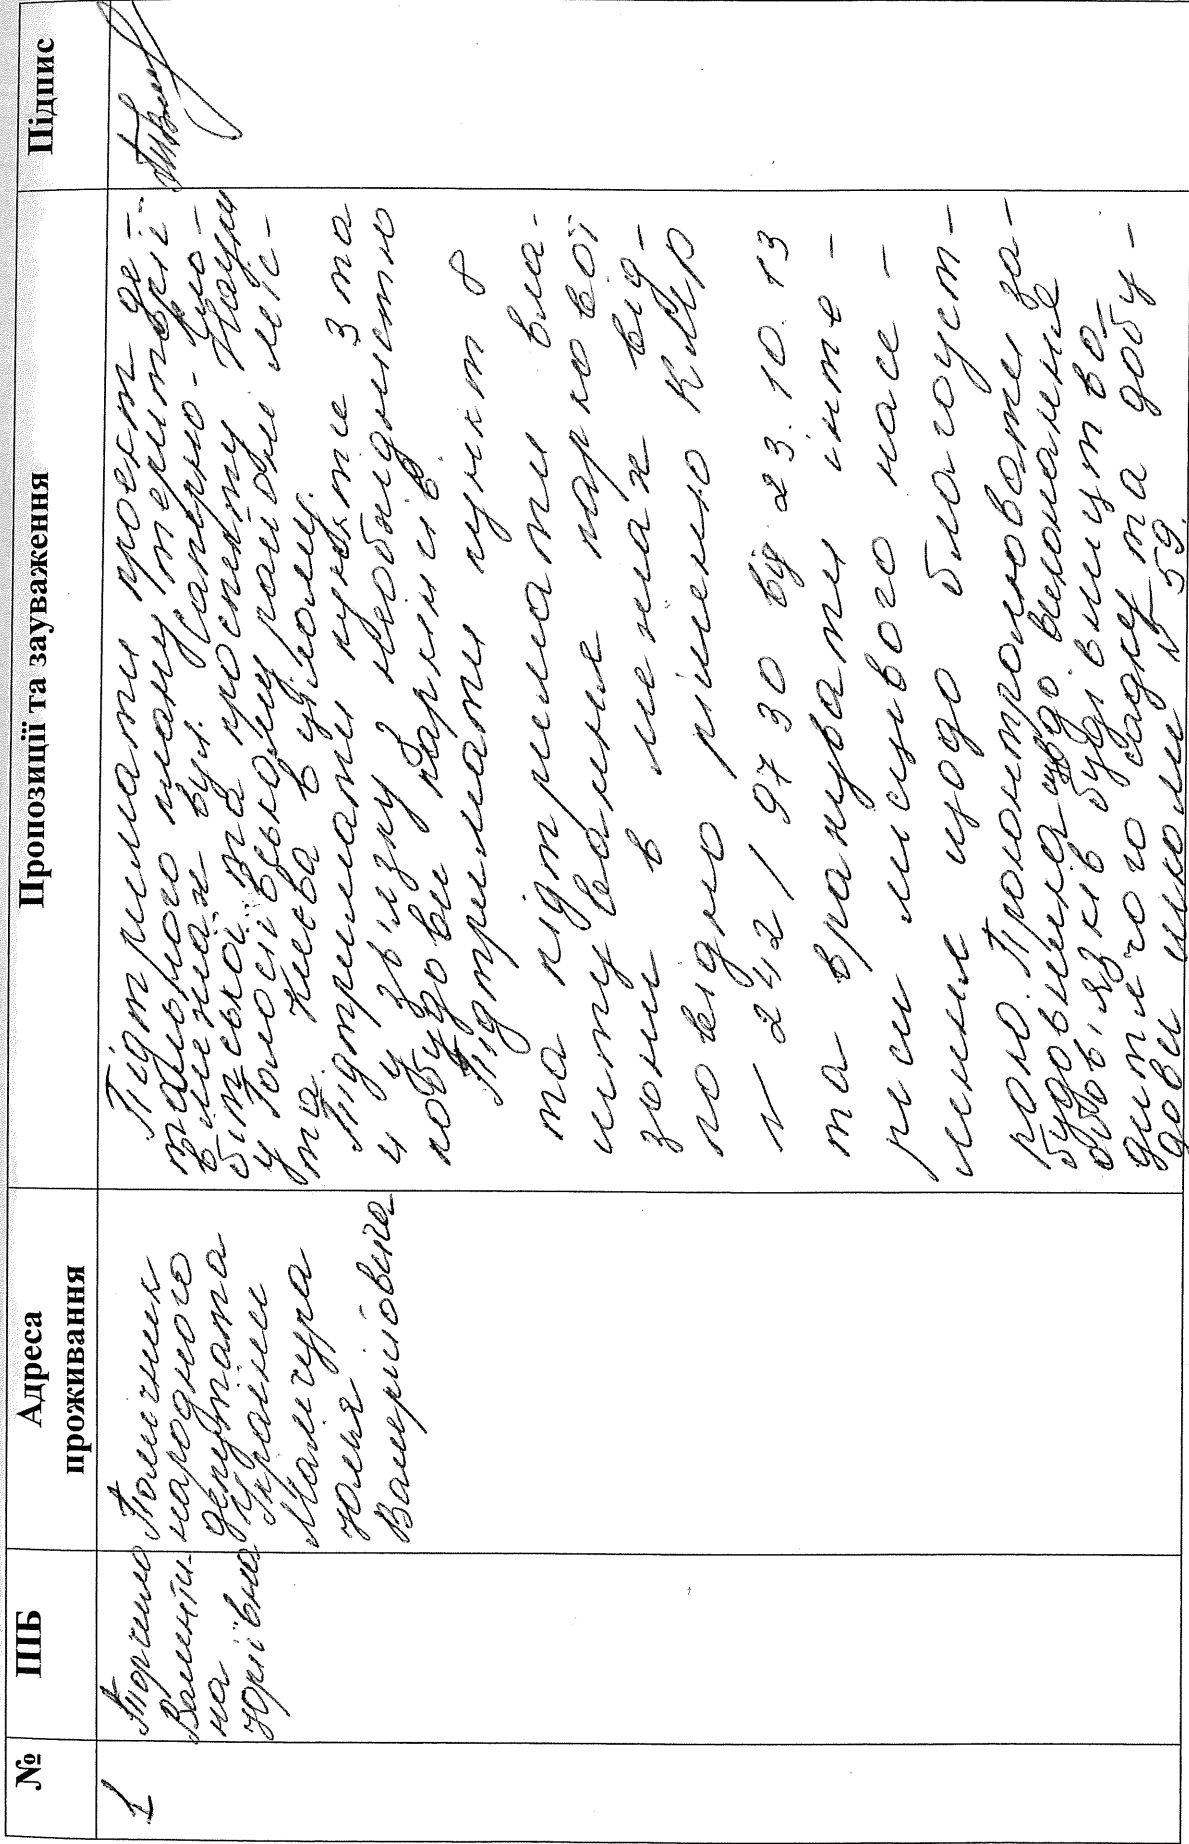 №
ПІБ
Адреса
проживання
Пропозиції та зауваження
Підпис
1
Валенти-
на
Юріївна
Помічник
народного
депутата
України
Юлія
Валеріївна
Підтримати проєкт де-
тального плану території
в межах вул. Саперно-Сло-
бітської та проспекту Науки
у Голосіївському районі міс-
та Києва в цілому.
Підтримати пункт 3 та
4 у зв'язку з необхідністю
побудови паркінгів
Підтримати пункт 8
та підтримати вла-
штування паркової
зони в межах від-
повідно рішенню КМР
№ 242/9730 від 23.10.13
та врахувати інте-
реси місцевого насе-
лення щодо благоуст-
рою. Проконтролювати за-
будовника щодо виконання
обов'язків будівництво
дитячого садку та добу-
дови школи № 59.